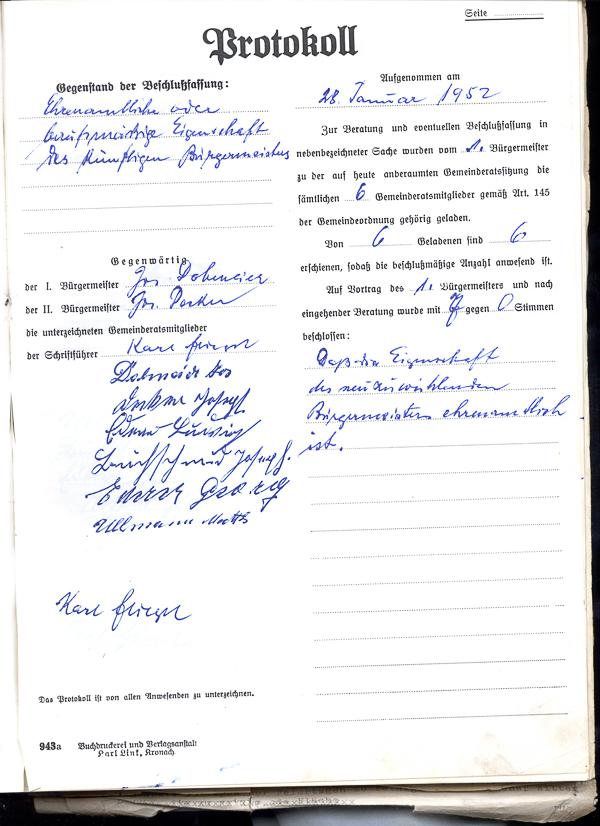 Seite
Protokoll
Gegenstand der Beschlußfassung:
Ehrenamtliche oder
berufsmäßige Eigenschaft
des künftigen Bürgermeisters
Gegenwärtig
der I. Bürgermeister Jos. Dobmeier
der II. Bürgermeister Jos.
die unterzeichneten Gemeinderatsmitglieder
der Schriftführer Karl
Dobmeier Jos
Josef
Ludwig
Josef
Georg
Ullmann Matth
Karl
Das Protokoll ist von allen Anwesenden zu unterzeichnen.
943a Buchdruckerei und Verlagsanstalt
Carl Link, Kronach
Aufgenommen am
28. Januar 1952
Zur Beratung und eventuellen Beschlußfassung in
nebenbezeichneter Sache wurden vom 1. Bürgermeister
zu der auf heute anberaumten Gemeinderatssitzung die
sämtlichen 6 Gemeinderatsmitglieder gemäß Art. 145
der Gemeindeordnung gehörig geladen.
Von 6 Geladenen sind 6
erschienen, sodaß die beschlußmäßige Anzahl anwesend ist.
Auf Vortrag des 1. Bürgermeisters und nach
eingehender Beratung wurde mit 7 gegen 0 Stimmen
beschlossen:
Daß die Eigenschaft
des neuzuwählenden
Bürgermeisters ehrenamtlich
ist.